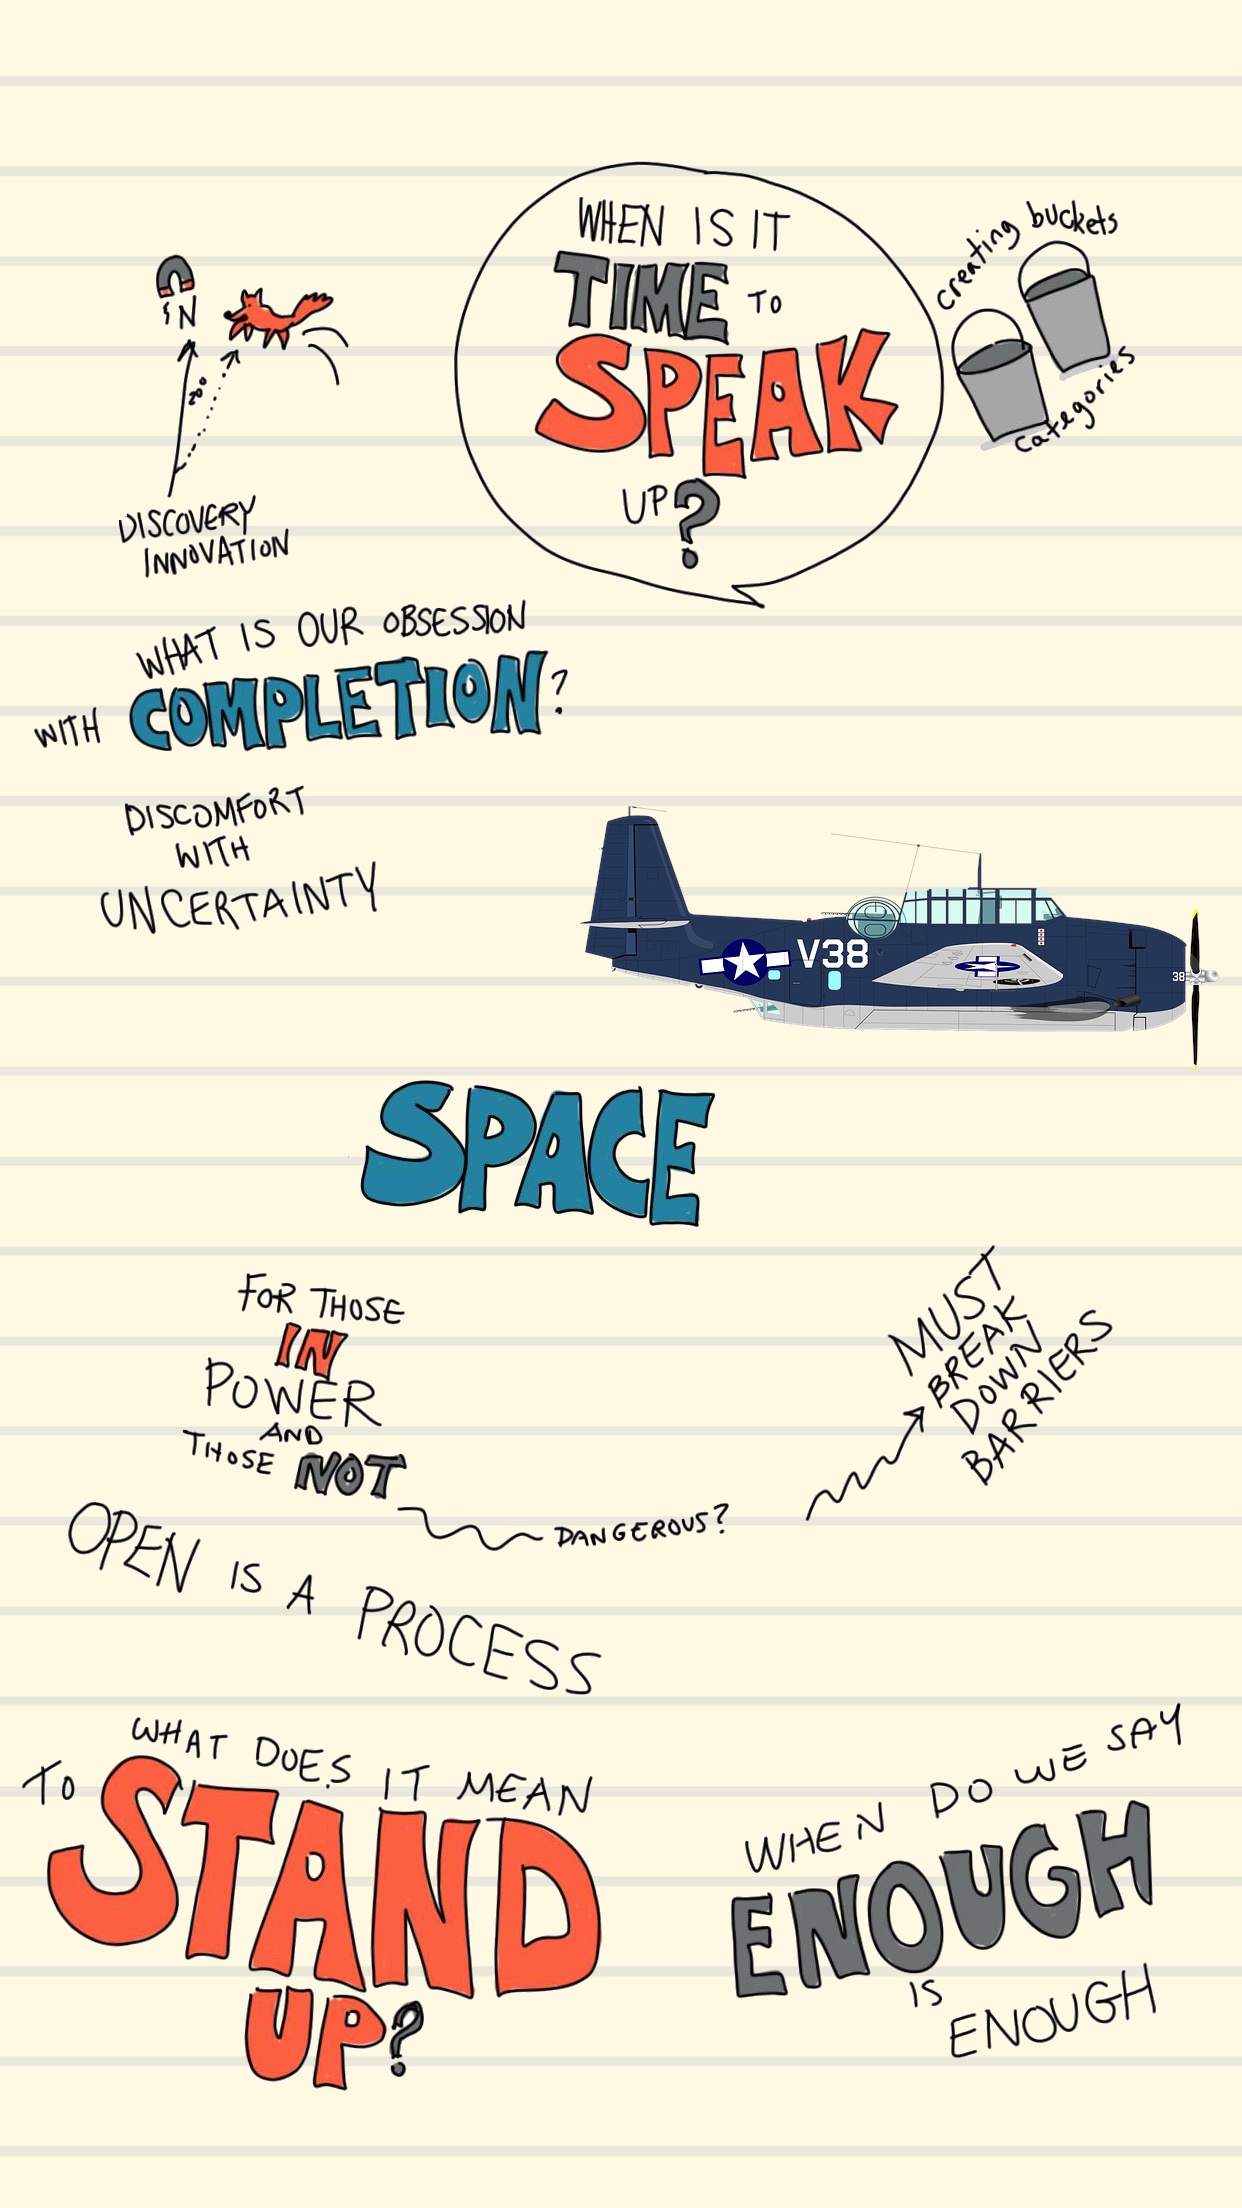 WHEN IS IT
TIME TO
SPEAK
UP?
creating buckets
categories
N
20°
DISCOVERY
INNOVATION
WHAT IS OUR OBSESSION
WITH COMPLETION?
DISCOMFORT
WITH
UNCERTAINTY
V38
38
SPACE
FOR THOSE
IN
POWER
AND
THOSE NOT
DANGEROUS?
MUST
BREAK
DOWN
BARRIERS
OPEN IS A PROCESS
WHAT DOES IT MEAN
TO STAND
UP?
WHEN DO WE SAY
ENOUGH
IS
ENOUGH